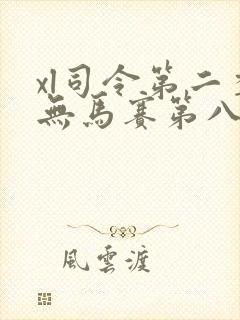 xl司令第二
無馬賽第八
風雲渡